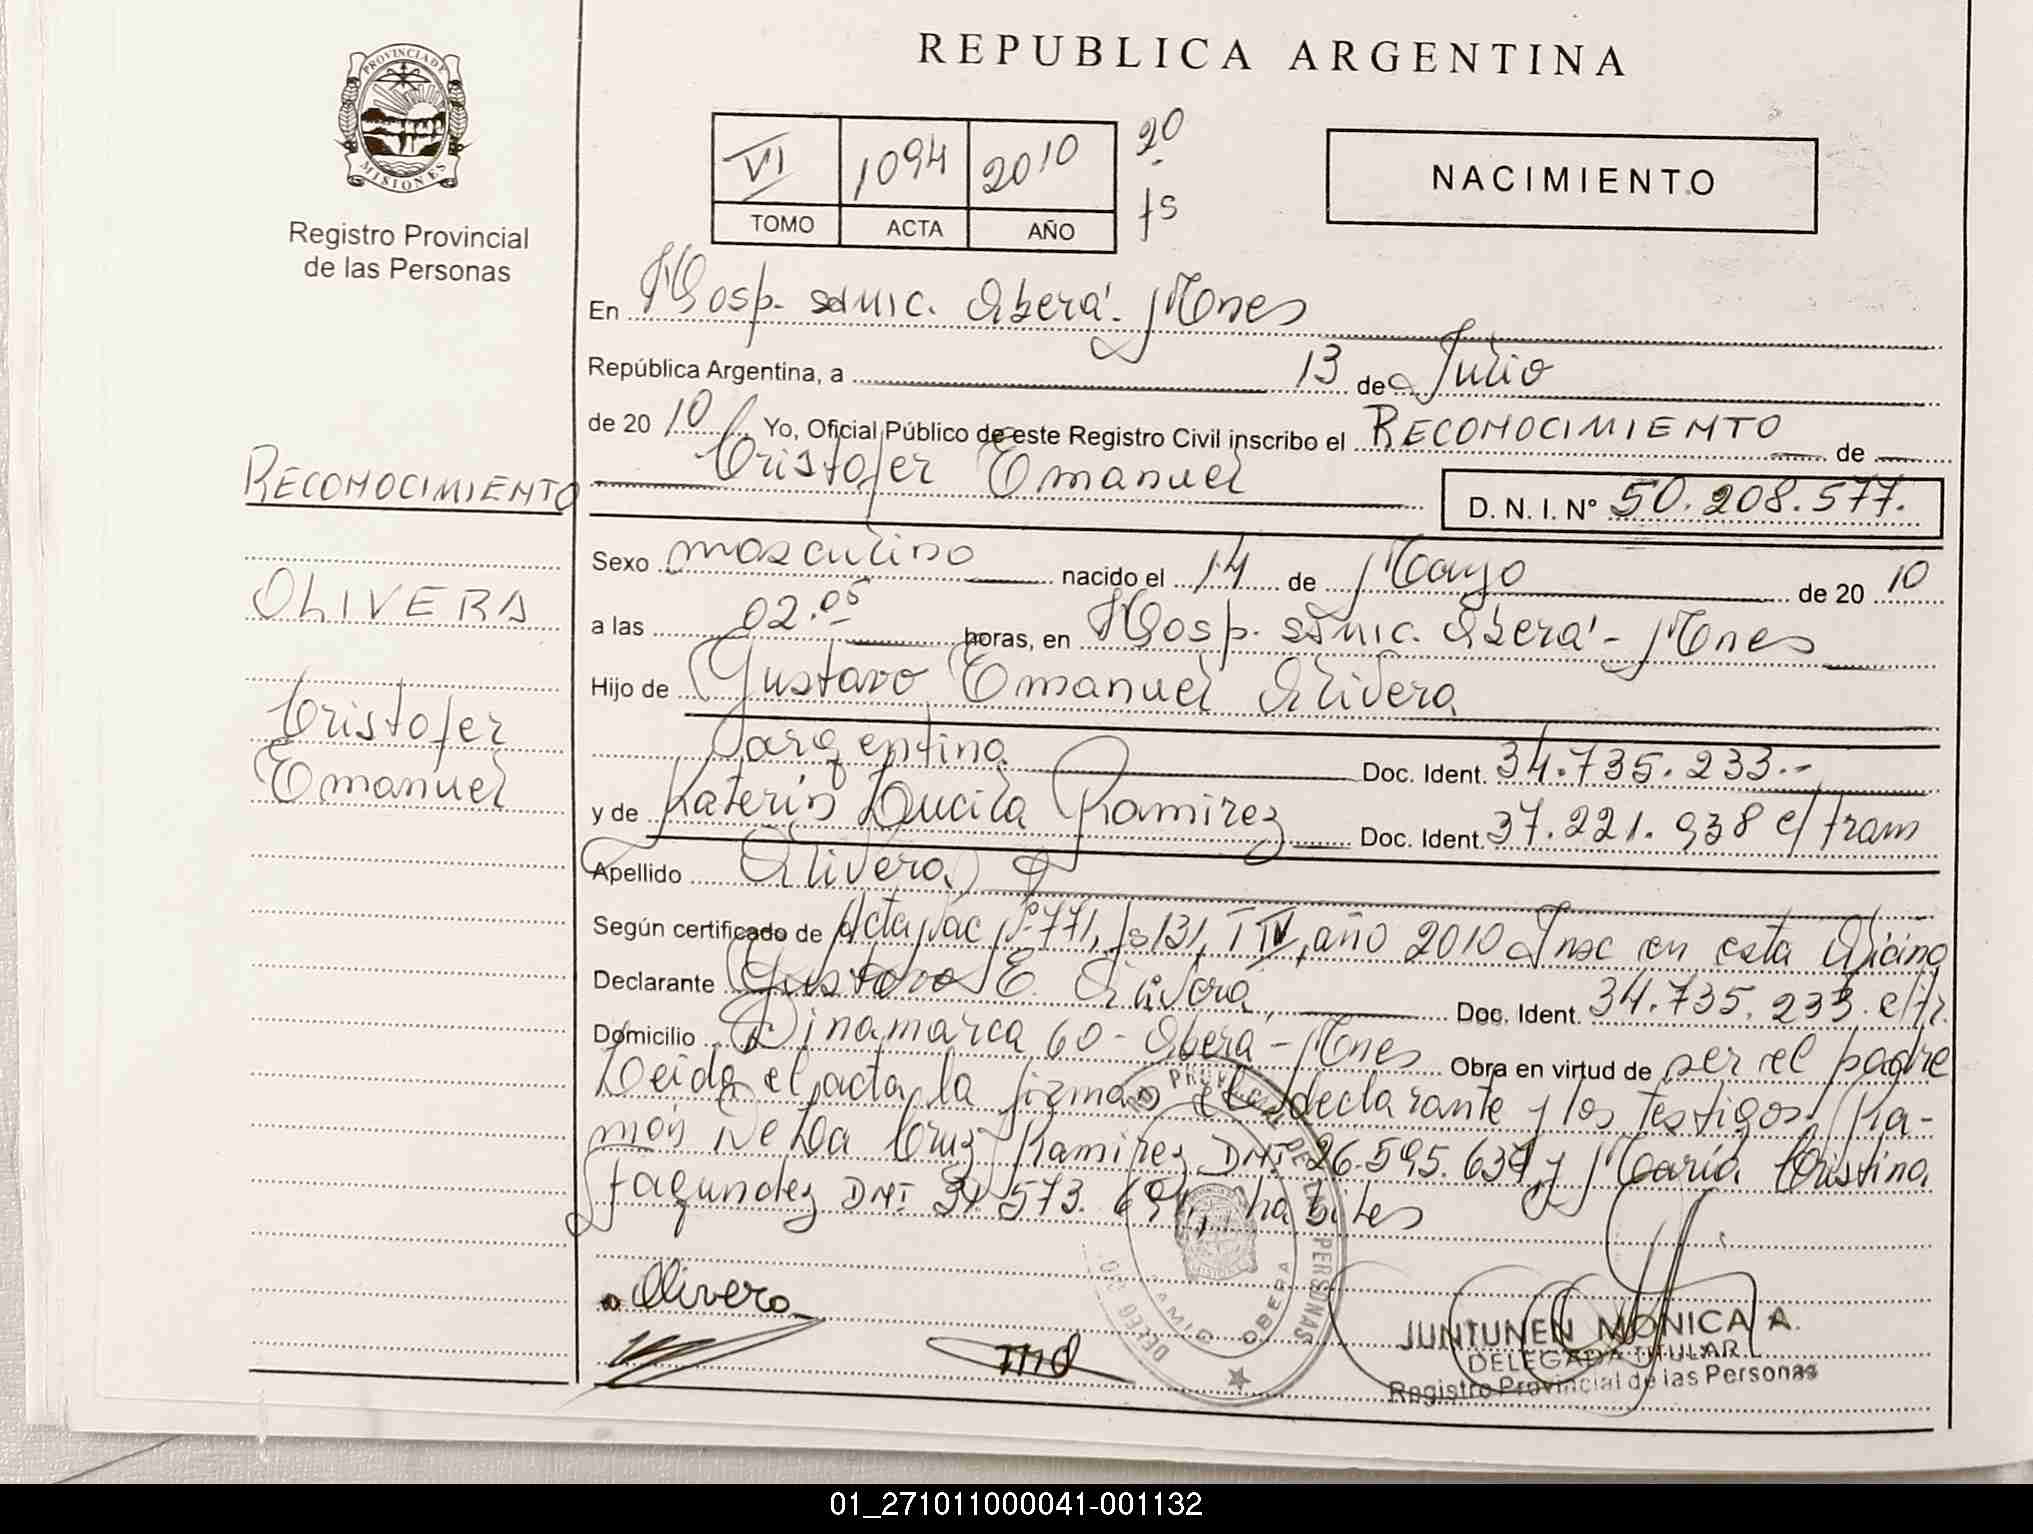 REPUBLICA ARGENTINA
PROVINCIA DE
MISIONES
Registro Provincial
de las Personas
VI 1094 2010 20
TOMO ACTA AÑO fs
NACIMIENTO
En Hosp. samic. Oberá - Mnes
República Argentina, a 13 de Julio
de 2010 Yo, Oficial Público de este Registro Civil inscribo el RECONOCIMIENTO de
Cristofer Emanuel D. N. I. N° 50.208.577.
RECONOCIMIENTO
OLIVERA
Cristofer
Emanuel
Sexo masculino nacido el 14 de Mayo de 2010
a las 02.05 horas, en Hosp. samic. Oberá - Mnes
Hijo de Gustavo Emanuel Olivera
argentino Doc. Ident. 34.735.233.-
y de Katerin Lucila Ramirez Doc. Ident. 37.221.938 e/tram
Apellido Olivera
Según certificado de Acta Nac N° 771, fs 131, T IV, año 2010 Insc en esta Oficina
Declarante Gustavo E. Olivera Doc. Ident. 34.735.233. e/tr.
Domicilio Dinamarca 60 - Oberá - Mnes Obra en virtud de ser el padre
Leida el acta la firman el declarante y los testigos Ra-
món De La Cruz Ramirez DNI 26.595.637 y María Cristina
Fagundez DNI 34.573.691, habiles
Olivera
JUNTUNEN MONICA A.
DELEGADA TITULAR
Registro Provincial de las Personas
PROVINCIAL DE LAS PERSONAS
SAMIC OBERA
01_271011000041-001132